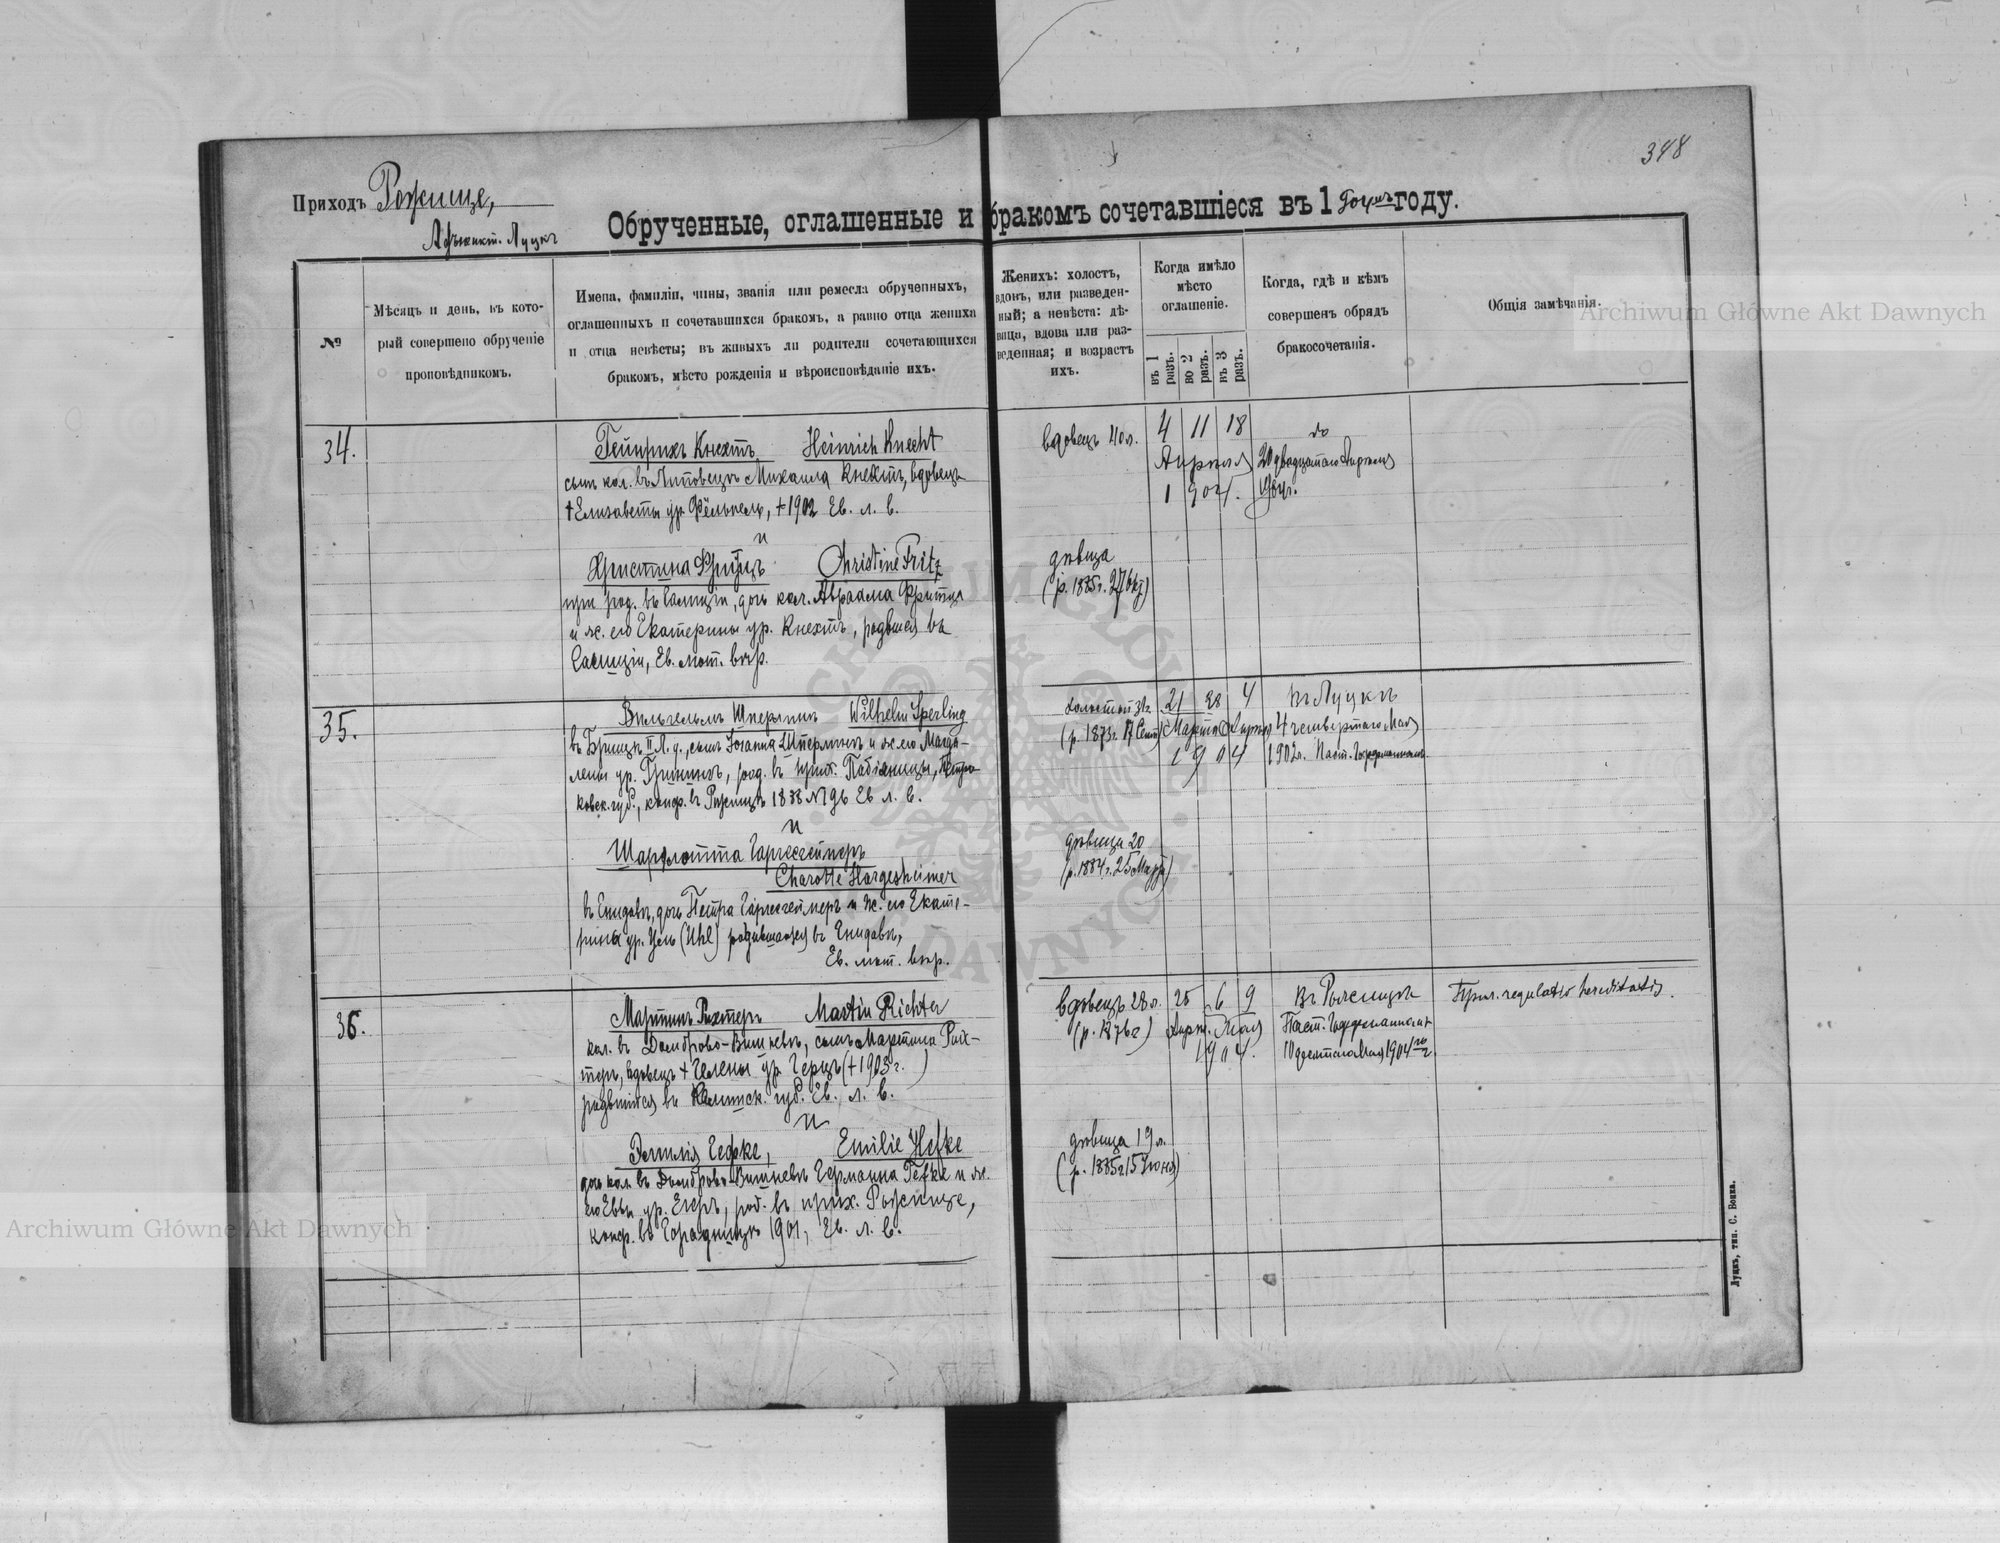 348
Приходъ Рожище,
Адъюнкт. Луцкъ
Обрученные, оглашенные и бракомъ сочетавшіеся въ 1904мъ году.
№
Мѣсяцъ и день, въ кото-
рый совершено обрученіе
проповѣдникомъ.
Имена, фамиліи, чины, званія или ремесла обрученныхъ,
оглашенныхъ и сочетавшихся бракомъ, а равно отца жениха
и отца невѣсты; въ живыхъ ли родители сочетающихся
бракомъ, мѣсто рожденія и вѣроисповѣданіе ихъ.
Женихъ: холостъ,
вдовъ, или разведен-
ный; а невѣста: дѣ-
вица, вдова или раз-
веденная; и возрастъ
ихъ.
Когда имѣло
мѣсто
оглашеніе.
въ 1 разъ.
во 2 разъ.
въ 3 разъ.
Когда, гдѣ и кѣмъ
совершенъ обрядъ
бракосочетанія.
Общія замѣчанія.
34.
Гейнрихъ Кнехтъ Heinrich Knecht
сынъ кол. въ Литовецкъ Михаила Кнехтъ, вдовецъ
† Елизаветы ур. Фёлькель, †1902 Ев. л. в.
и
Христина Фритцъ Christine Fritz
при род. въ Галиціи, дочь кол. Авраама Фритца
и ж. его Екатерины ур. Кнехтъ, родвшейся въ
Галиціи, Ев. лют. вѣр.
вдовецъ 40 л.
4 11 18
Апрѣля
1904.
до
20 двадцатаго Апрѣля
1904г.
дѣвица
(р. 1885г.
35.
Вильгельмъ Шперлингъ Wilhelm Sperling
сынъ Іоанна Шперлингъ и ж. его Магда-
лены ур. род. въ прих. Пабіяницы, Петро-
ковск. губ., конф. въ Рожищѣ 1888 № 96 Ев. л. в.
и
Шарлотта Гаргесгеймеръ
Charotte Hargesheimer
въ Гнидавѣ, дочь Петра Гаргесгеймеръ и ж. его Екате-
рины ур. Уль (Uhl) родившаяся въ Гнидавѣ,
Ев. лют. вѣр.
холостой 31г.
(р. 1873г. 17 Сент)
21 28 4
Марта Апрѣля
1904
Въ Луцкѣ
4 четвертаго Мая
1902г. Паст.
дѣвица 20
(р. 1884г. 25 Марта)
36.
Мартинъ Рихтеръ Martin Richter
кол. въ Домброво-Вишневъ, сынъ Мартина Рих-
теръ, вдовецъ † Гелены ур. Герцъ (†1903г.)
родвшійся въ Калишск. губ. Ев. л. в.
и
Эмилія Гефке, Emilie Hefke
дочь кол. въ Домброво-Вишневъ Германна Гефке и ж.
его Евы ур. Егеръ, род. въ прих. Рожище,
конф. въ Городницѣ 1901, Ев. л. в.
вдовецъ 28 л.
(р. 1876г)
25 6 9
Апр. Мая
1904.
Въ Рожищѣ
Паст.
10 десятаго Мая 1904 г.
Прил. regulatio hereditatis.
дѣвица 19 л.
(р. 1885г. 15 Іюня)
Луцкъ, тип. С. Бонка.
Archiwum Główne Akt Dawnych
Archiwum Główne Akt Dawnych